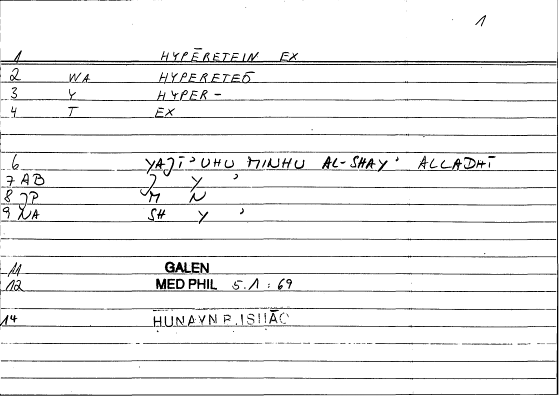 1
1 HYPĒRETEIN EX
2 WA HYPERETEŌ
3 Y HYPER-
4 T EX
6 YAJĪ'UHU MINHU AL-SHAY' ALLADHĪ
7 AB J Y '
8 JP M N
9 NA SH Y '
11 GALEN
12 MED PHIL 5.1 : 69
14 HUNAYN B. ISHĀQ